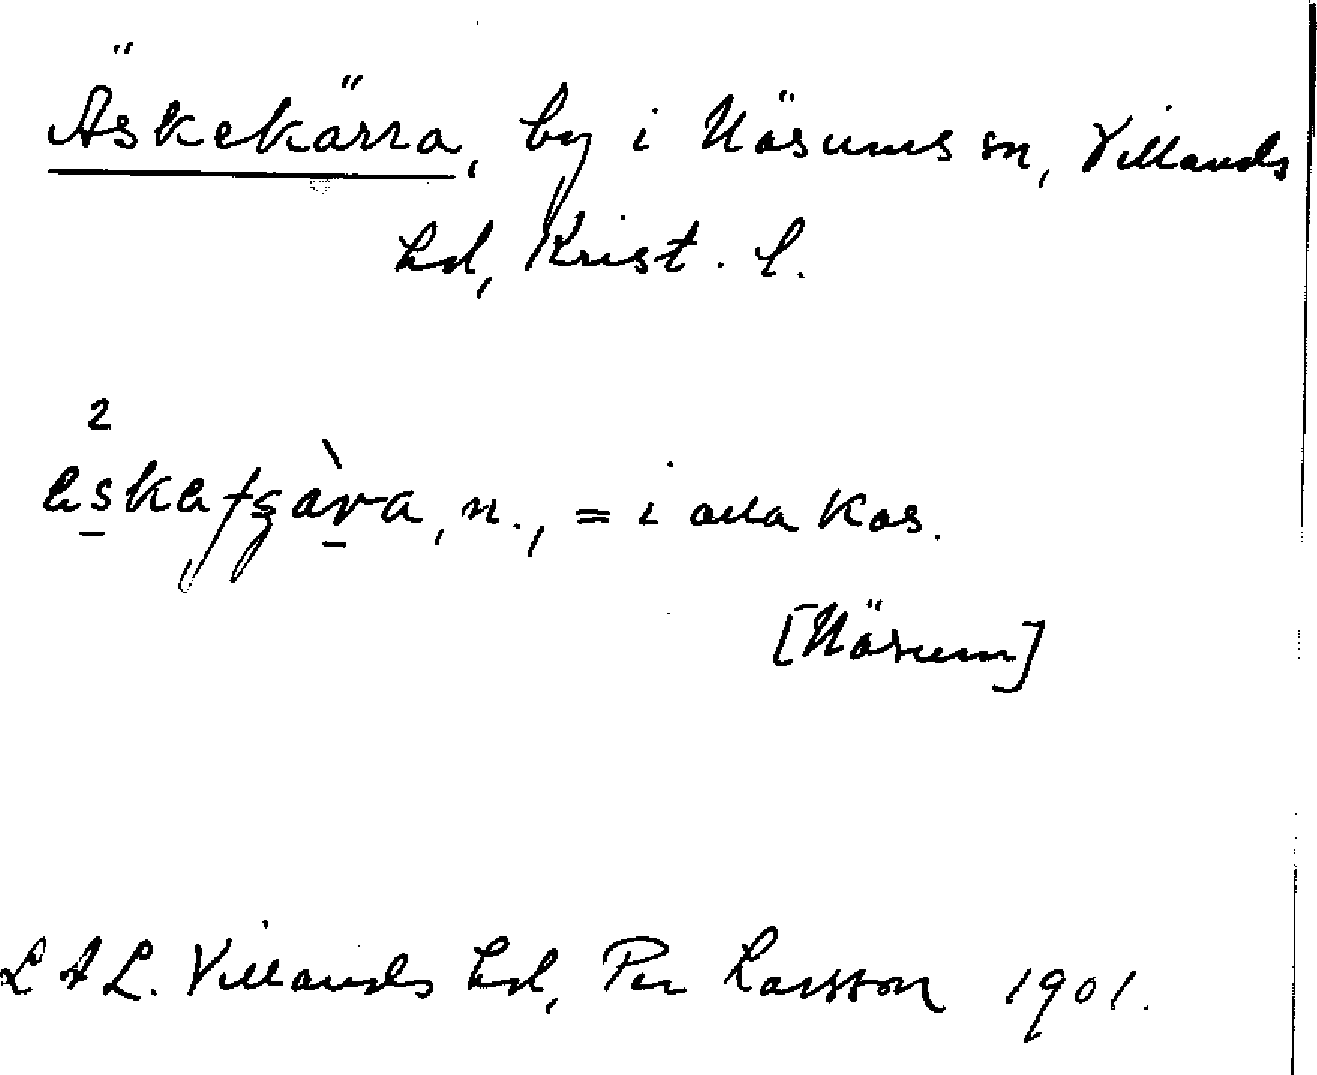 Äskekärra, by i Näsums sn, Villands
hd, Krist. l.
2
, n., = i alla kas.
[Näsum]
L A L. Villands hd, Per Larsson 1901.